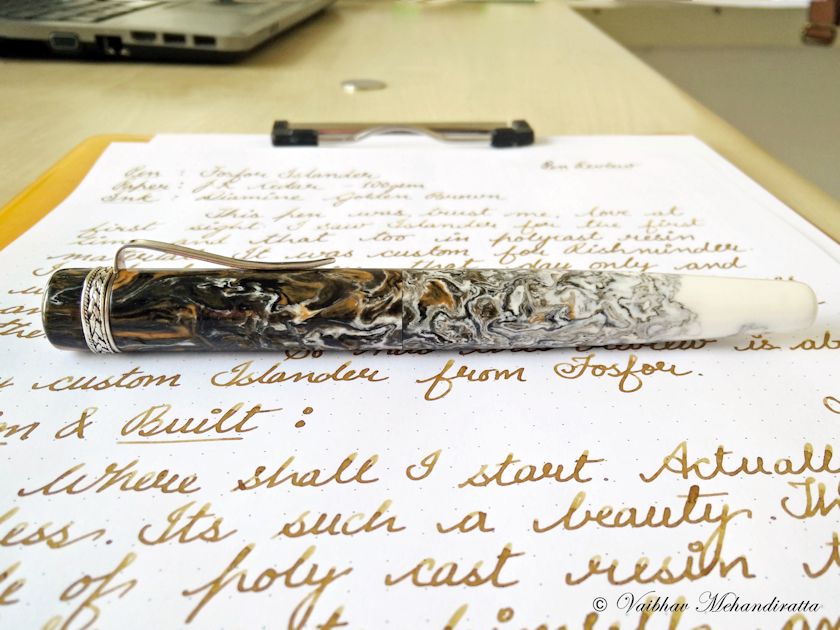 Pen Review
Pen : Fosfor Islander
Paper : J.K Cedar - 100gsm
Ink : Diamine Golden Brown
This pen was trust me, love at
first sight. I saw Islander for the first
time and that too in polycast resin
material. It was custom for Rishminder.
that day only and
So this hand review is ab
custom Islander from Fosfor.
& Built :
Where shall I start. Actuall
less. Its such a beauty. Th
of poly cast resin
himself
© Vaibhav Mehandiratta